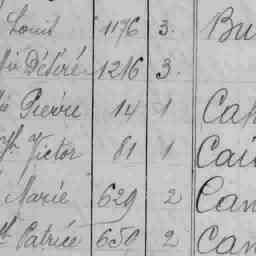 Louis 1176 3. Bu
Désiré 1216 3.
Pierre 14 1 Cap
Jh Victor 81 1 Cai
Marie 629 2 Can
Patrice 650 2 Can